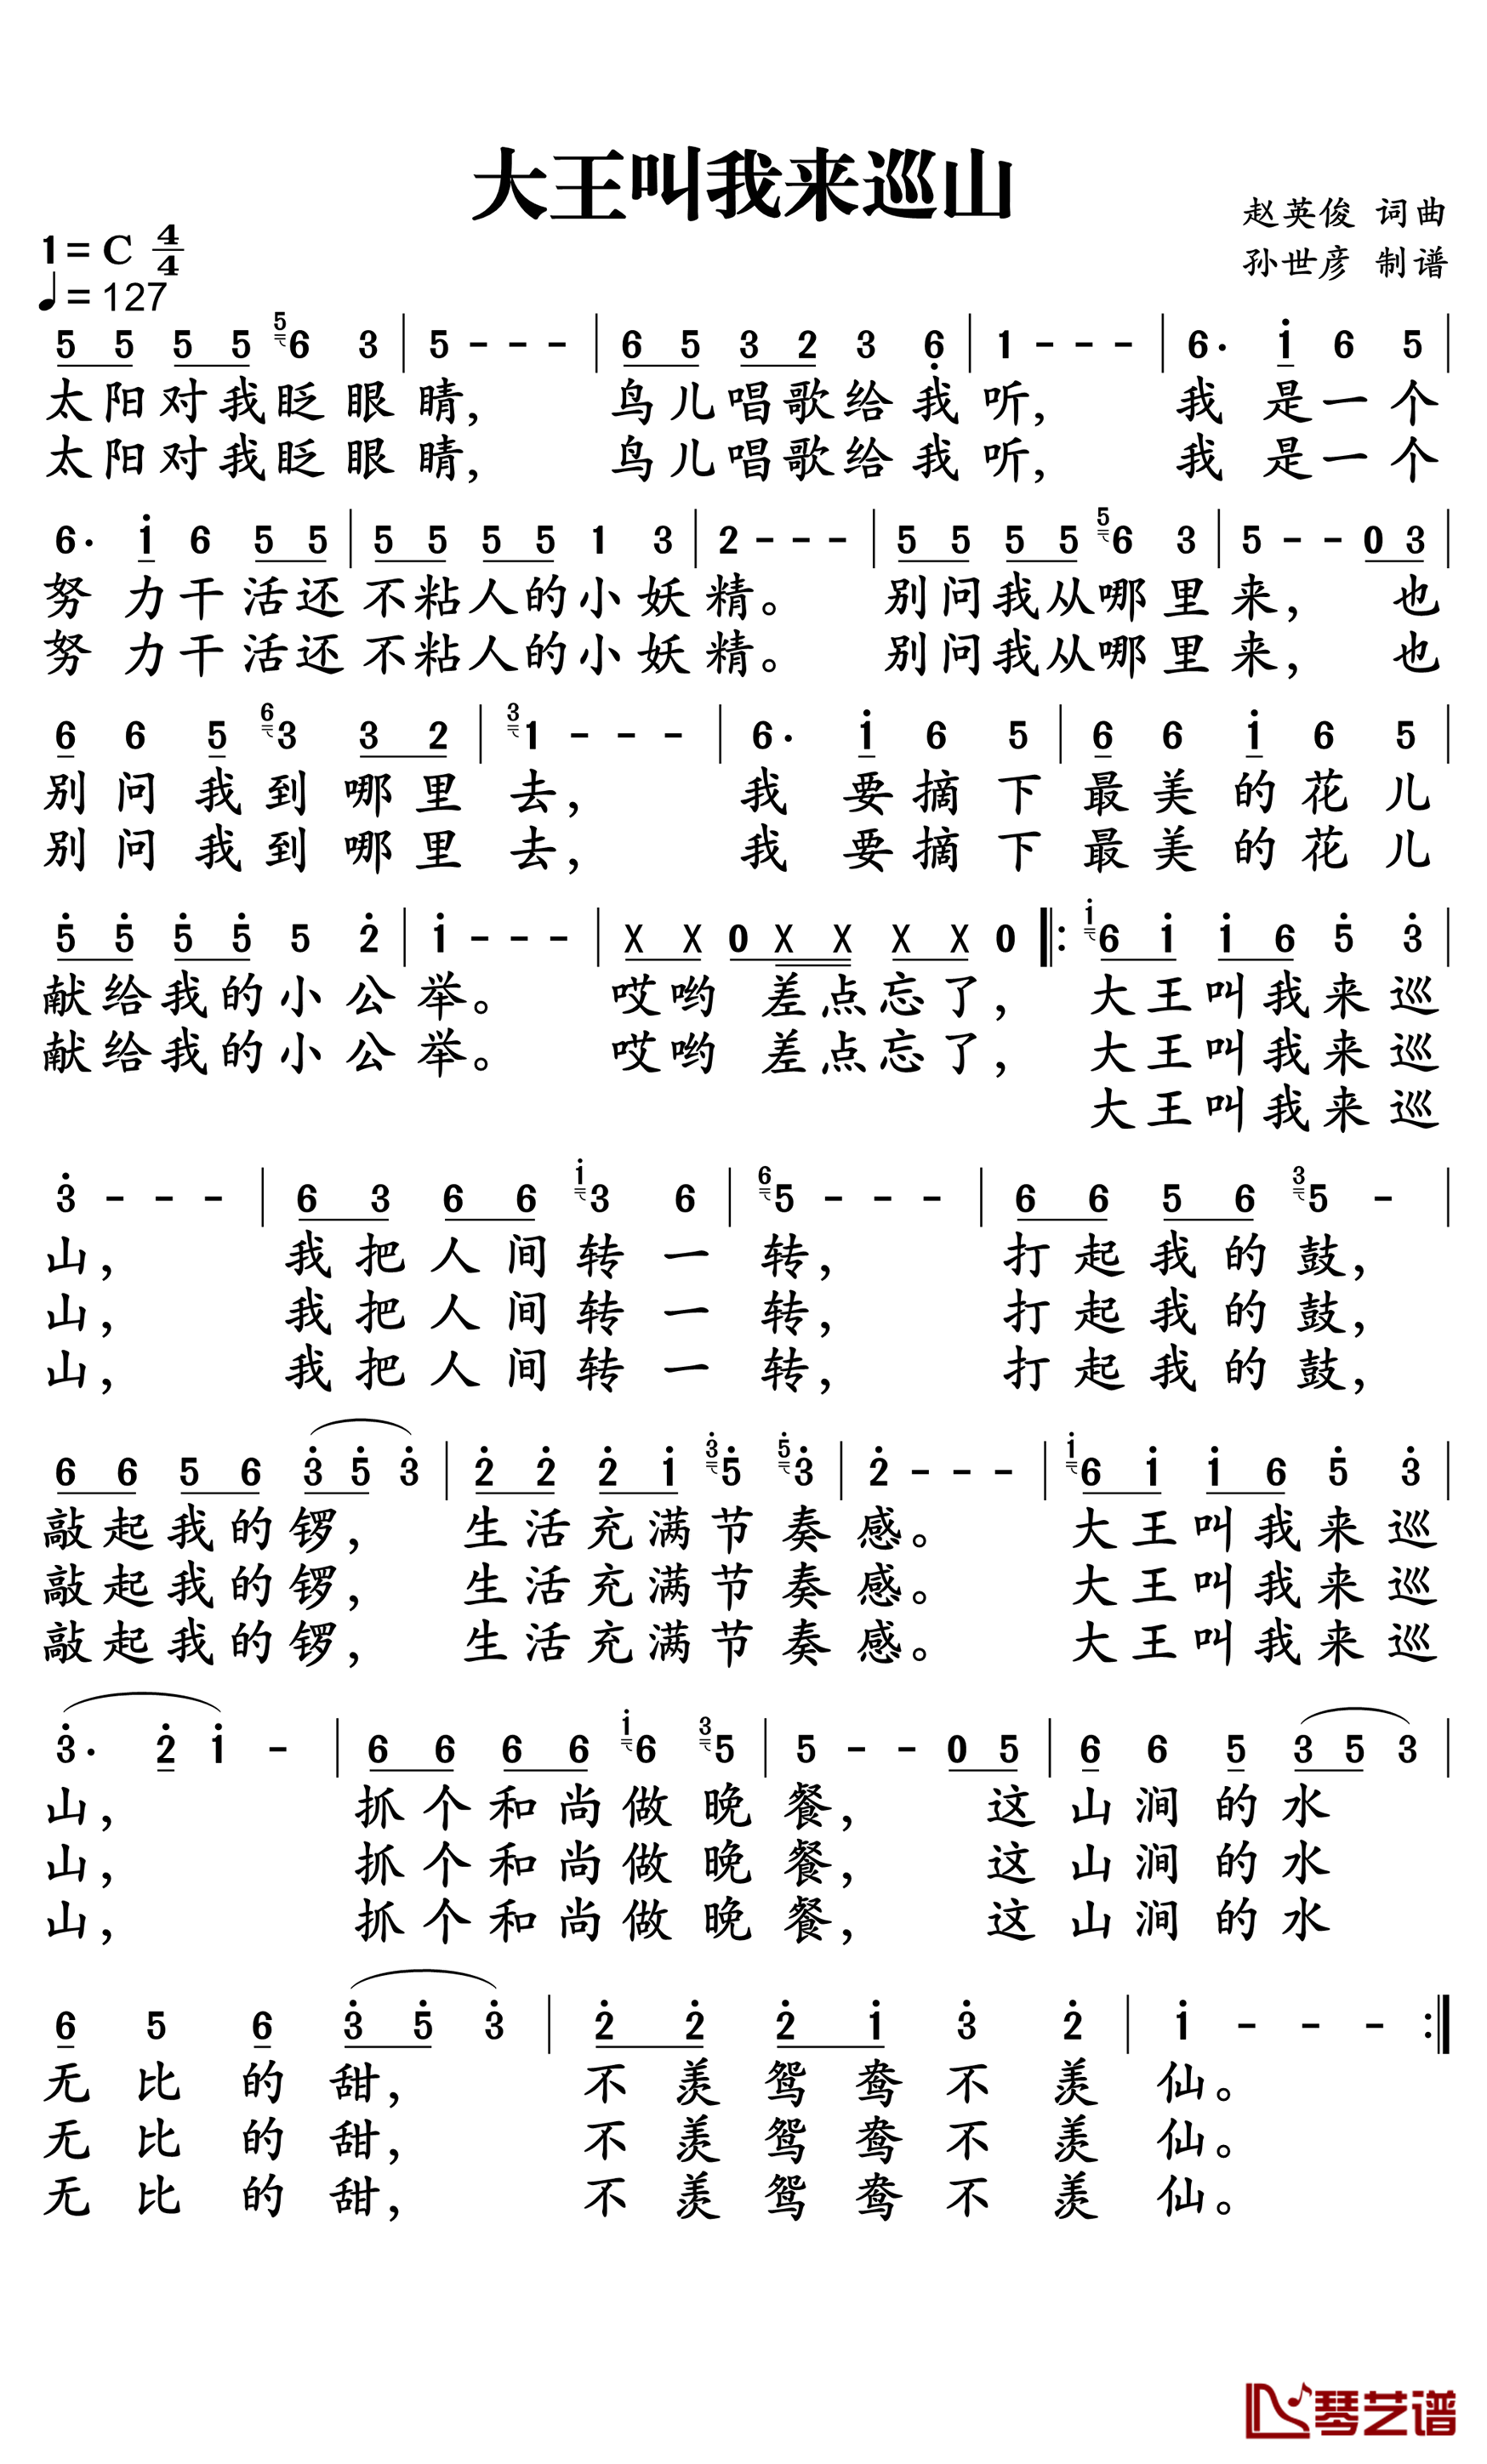 大王叫我来巡山
赵英俊 词曲
1=C 4/4
孙世彦 制谱
♩=127
5 5 5 5 5 6 3 | 5 - - - | 6 5 3 2 3 6̣ | 1 - - - | 6· i 6 5 |
太阳对我眨眼睛, 鸟儿唱歌给我听, 我是一个
太阳对我眨眼睛, 鸟儿唱歌给我听, 我是一个
6· i 6 5 5 | 5 5 5 5 1 3 | 2 - - - | 5 5 5 5 5 6 3 | 5 - - 0 3 |
努力干活还不粘人的小妖精。 别问我从哪里来, 也
努力干活还不粘人的小妖精。 别问我从哪里来, 也
6 6 5 6 3 3 2 | 3 1 - - - | 6· i 6 5 | 6 6 i 6 5 |
别问我到哪里去, 我要摘下最美的花儿
别问我到哪里去, 我要摘下最美的花儿
5̇ 5̇ 5̇ 5̇ 5 2̇ | i - - - | X X 0 X X X X 0 |: i 6 i i 6 5̇ 3̇ |
献给我的小公举。 哎哟 差点忘了, 大王叫我来巡
献给我的小公举。 哎哟 差点忘了, 大王叫我来巡
大王叫我来巡
3̇ - - - | 6 3 6 6 i 3 6 | 6 5 - - - | 6 6 5 6 3 5 - |
山, 我把人间转一转, 打起我的鼓,
山, 我把人间转一转, 打起我的鼓,
山, 我把人间转一转, 打起我的鼓,
6 6 5 6 3̇ 5̇ 3̇ | 2̇ 2̇ 2̇ i 3̇ 5̇ 5̇ 3̇ | 2̇ - - - | i 6 i i 6 5̇ 3̇ |
敲起我的锣, 生活充满节奏感。 大王叫我来巡
敲起我的锣, 生活充满节奏感。 大王叫我来巡
敲起我的锣, 生活充满节奏感。 大王叫我来巡
3̇· 2̇ i - | 6 6 6 6 i 6 3 5 | 5 - - 0 5 | 6 6 5 3 5 3 |
山, 抓个和尚做晚餐, 这山涧的水
山, 抓个和尚做晚餐, 这山涧的水
山, 抓个和尚做晚餐, 这山涧的水
6 5 6 3̇ 5̇ 3̇ | 2̇ 2̇ 2̇ i 3̇ 2̇ | i - - - :|
无比的甜, 不羡鸳鸯不羡仙。
无比的甜, 不羡鸳鸯不羡仙。
无比的甜, 不羡鸳鸯不羡仙。
琴艺谱